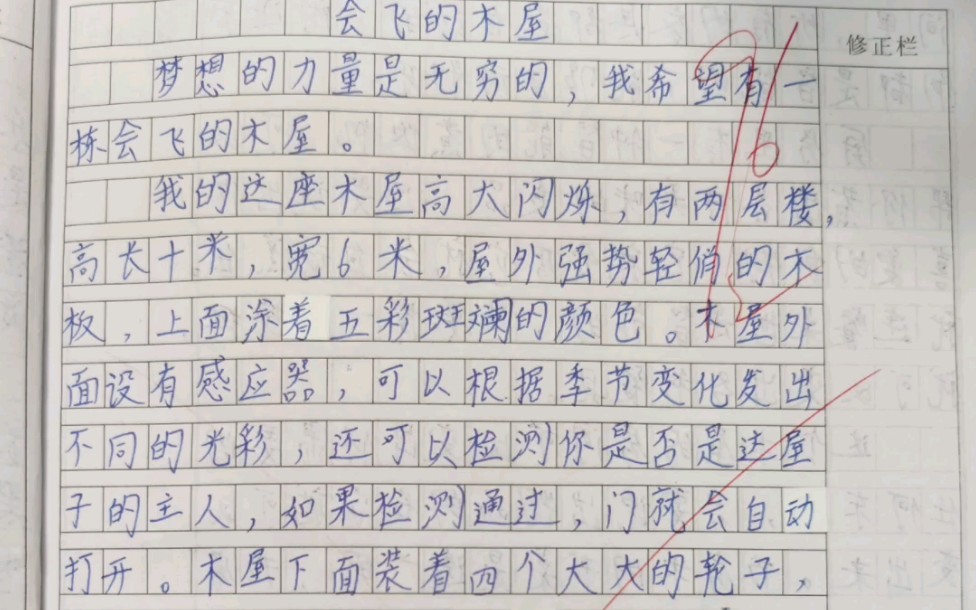 会飞的木屋
修正栏
梦想的力量是无穷的，我希望有一
栋会飞的木屋。
我的这座木屋高大闪烁，有两层楼，
高长十米，宽6米，屋外强势轻俏的木
板，上面涂着五彩斑斓的颜色。木屋外
面设有感应器，可以根据季节变化发出
不同的光彩，还可以检测你是否是这屋
子的主人，如果检测通过，门就会自动
打开。木屋下面装着四个大大的轮子，